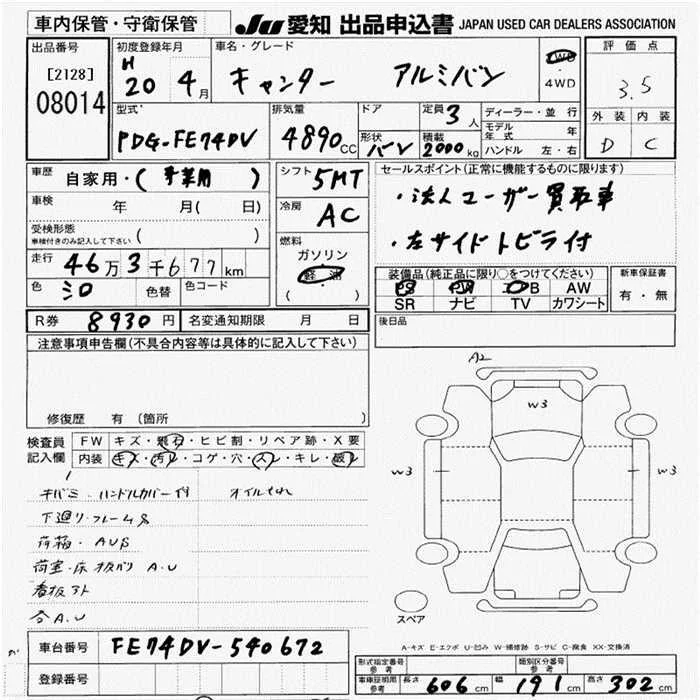 車内保管・守衛保管
JU 愛知 出品申込書 JAPAN USED CAR DEALERS ASSOCIATION
出品番号
[2128]
08014
初度登録年月
H 20 4月
車名・グレード
キャンター アルミバン
2WD
4WD
評価点
3.5
外装 内装
D C
型式
PDG-FE74DV
排気量
4890cc
ドア
形状
バン
定員 3人
積載 2000kg
ディーラー・並行
モデル年式 年
ハンドル 左・右
車歴
自家用・(事業用)
車検 年 月( 日)
受検形態
車検付きのみ記入して下さい ( )
走行
46万3千677km
色 シロ 色替 色コード
シフト 5MT
冷房 AC
燃料
ガソリン
軽油
( )
セールスポイント(正常に機能するものに限ります)
・法人ユーザー買取車
・左サイドトビラ付
装備品(純正品に限り○をつけてください)
PS PW エアB AW
SR ナビ TV カワシート
新車保証書
有・無
後日品
R券 8930円 名変通知期限 月 日
注意事項申告欄(不具合内容等は具体的に記入して下さい)
修復歴 有(箇所 )
検査員
記入欄
FW キズ・飛石・ヒビ割・リペア跡・X要
内装 キズ・汚れ・コゲ・穴・スレ・キレ・破れ
キバミ・ハンドルカバー付 オイルもれ
下廻り・フレームS
荷箱・AUS
荷室・床板バリ A.U
看板アト
各A.U
A2
W3
W3
W3
スペア
A-キズ E-エクボ U-凹み W-補修跡 S-サビ C-腐食 XX-交換済
車台番号 FE74DV-540672
登録番号
型式指定番号
参考
類別区分番号
参考
車庫証明用
参考
長さ 606cm 幅 191cm 高さ 302cm